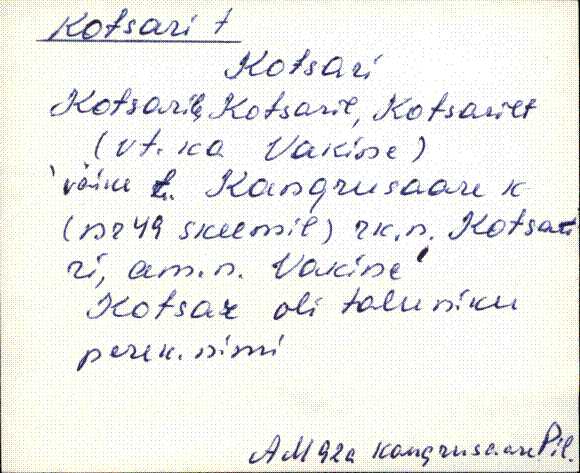 Kotsari t
Kotsari
Kotsarile, Kotsaril, Kotsarilt
(vt. ka Vakine)
väike t. Kangrusaare k
(nr 49 skeemil) rk.n. Kotsa-
ri, am.n. Vakine
Kotsar oli taluniku
perek. nimi
AM 92a Kangrusaare Pil.